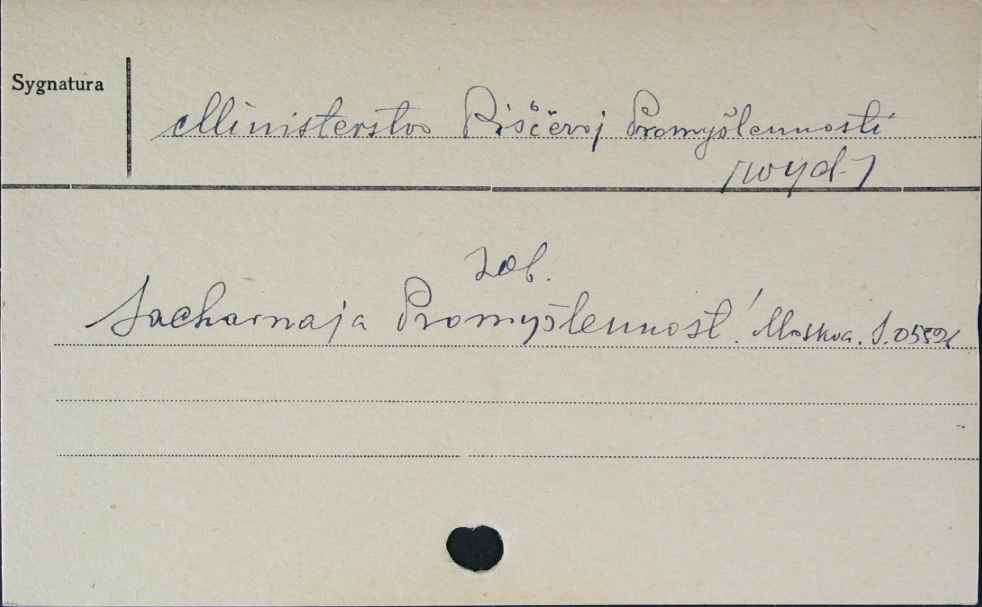 Sygnatura
Ministerstvo Piščevoj Promyšlennosti
/wyd./
zob.
Sacharnaja Promyšlennost'. Moskva. S.